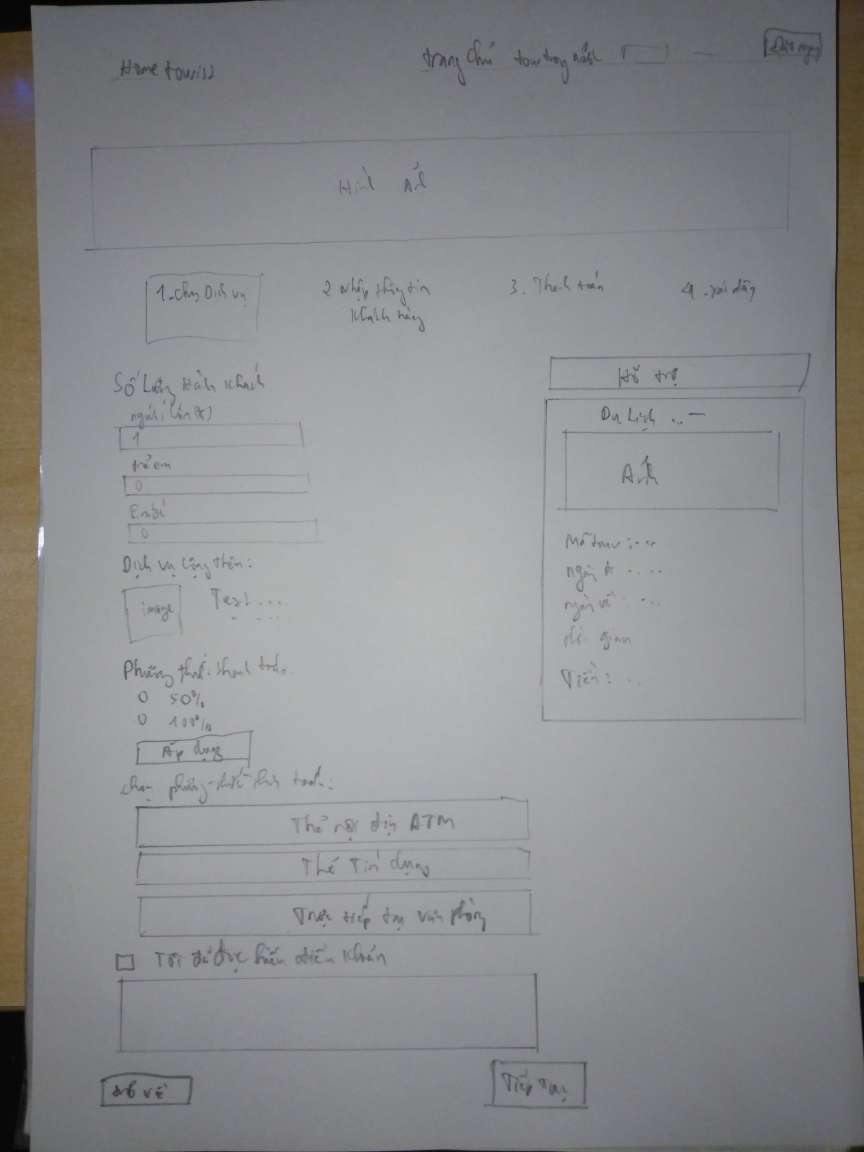 Home tourist
trang chủ tour trong nước
Đặt ngay
Hình Ảnh
1. chọn Dịch vụ
2 nhập thông tin
khách hàng
3. Thanh toán
4.
Số lượng hành khách
người lớn (*)
1
trẻ em
0
Em bé
0
Dịch vụ cộng thêm:
image
Text ...
Phương thức thanh toán
50%
100%
Áp dụng
chọn phương thức thanh toán:
Thẻ nội địa ATM
Thẻ Tín dụng
Trực tiếp tại văn phòng
Tôi đã đọc điều khoản
Tiếp tục
Hỗ trợ
Du Lịch ...
Ảnh
Mã tour: ...
ngày đi ....
ngày về ....
thời gian
Tiền: ..